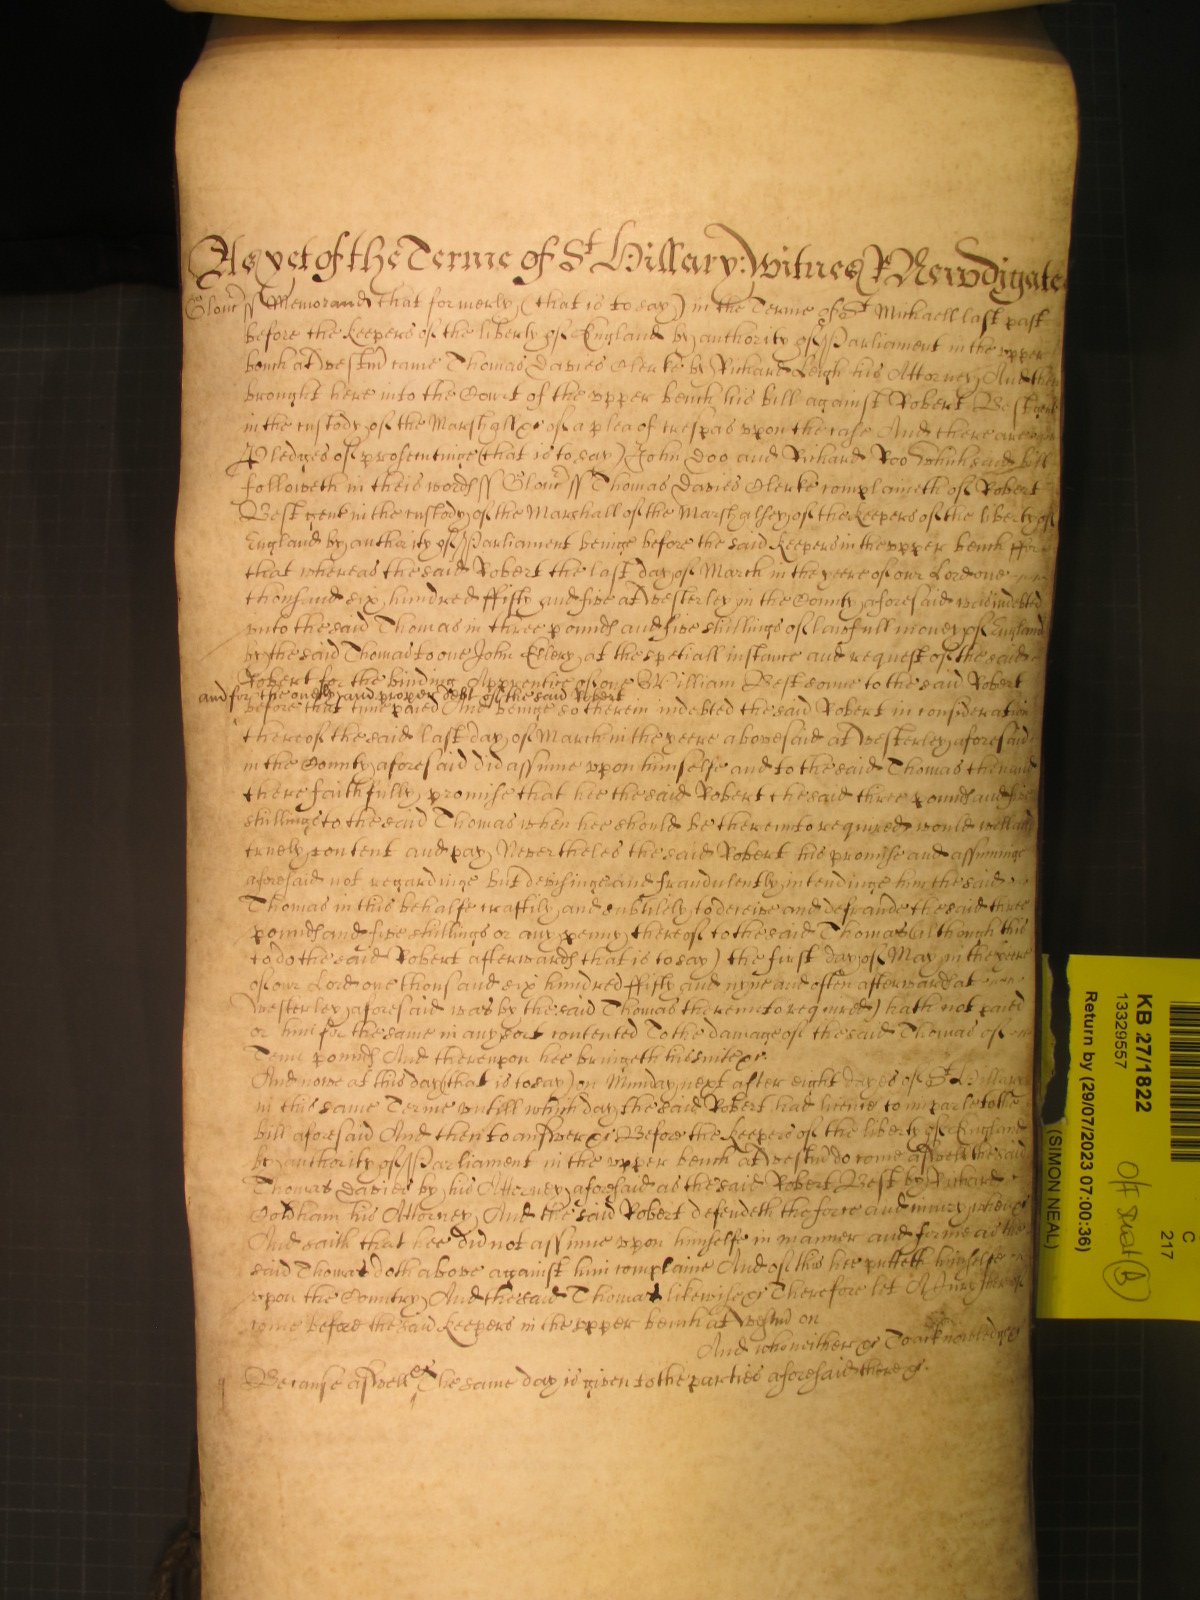 As yet of the Terme of St Hillary: Witnes R Newdigate
Glouc ss Memorand that formerly (that is to say) in the Terme of St Michaell last past
before the keepers of the liberty of England by authority of Parliament in the upper
bench at Westm came Thomas Davies Clerke by Richard Leigh his Attorney And then
brought here into the Court of the upper bench his bill against Robert Best gent
in the custody of the Marshall &c of a plea of trespas upon the case And there are
Pledges of prosecutinge (that is to say) John Doo and Richard Roo which said bill
followeth in theis words ss Glouc ss Thomas Davies Clerke complaineth of Robert
Best gent in the custody of the Marshall of the Marshalsey of the keepers of the liberty of
England by authority of Parliament beinge before the said keepers in the upper bench ffor
that whereas the said Robert the last day of March in the yeere of our Lord one
thousand six hundred ffifty and five at Westerley in the County aforesaid was indebted
unto the said Thomas in three pounds and five shillings of lawfull money of England
by the said Thomas to one John Ellery at the speciall instance and request of the said
Robert for the binding Apprentice of one William Best sonne to the said Robert
and for the onely and proper debt of the said Robert
before that time paied And beinge so therein indebted the said Robert in consideration
thereof the said last day of March in the yeere abovesaid at Westerley aforesaid
in the County aforesaid did assume upon himselfe and to the said Thomas then and
there faithfully promise that hee the said Robert the said three pounds and five
shillings to the said Thomas when hee should be thereunto required would well and
truely content and pay Nevertheles the said Robert his promise and assuminge
aforesaid not regardinge but devisinge and fraudulently intendinge him the said
Thomas in this behalfe craftily and subtilely to deceive and defraude the said three
pounds and five shillings or any penny thereof to the said Thomas (although this
to do the said Robert afterwards that is to say) the first day of May in the yeere
of our Lord one thousand six hundred ffifty and nyne and often afterwards at
Westerley aforesaid was by the said Thomas thereunto required) hath not paied
or him for the same in any sort contented To the damage of the said Thomas of
Tenn pounds And thereupon hee bringeth his suite &c.
And nowe at this day (that is to say) on Munday next after eight dayes of St Hillary
in this same Terme untill which day the said Robert had licence to imparle to the
bill aforesaid And then to answer &c Before the keepers of the liberty of England
by authority of Parliament in the upper bench at Westm do come aswell the said
Thomas Davies by his Attorney aforesaid as the said Robert Best by Richard
Coldham his Attorney And the said Robert defendeth the force and iniury when &c
And saith that hee did not assume upon himselfe in manner and forme as the
said Thomas doth above against him complaine And of this hee putteth himselfe
upon the Country And the said Thomas likewise &c Therefore let A Jury thereof
come before the said keepers in the upper bench at Westm on
And who neither &c To acknowledge &c
Because aswell &c The same day is given to the parties aforesaid there &c.
KB 27/1822
13329557
Return by (29/07/2023 07:00:36)
(SIMON NEAL)
C
217